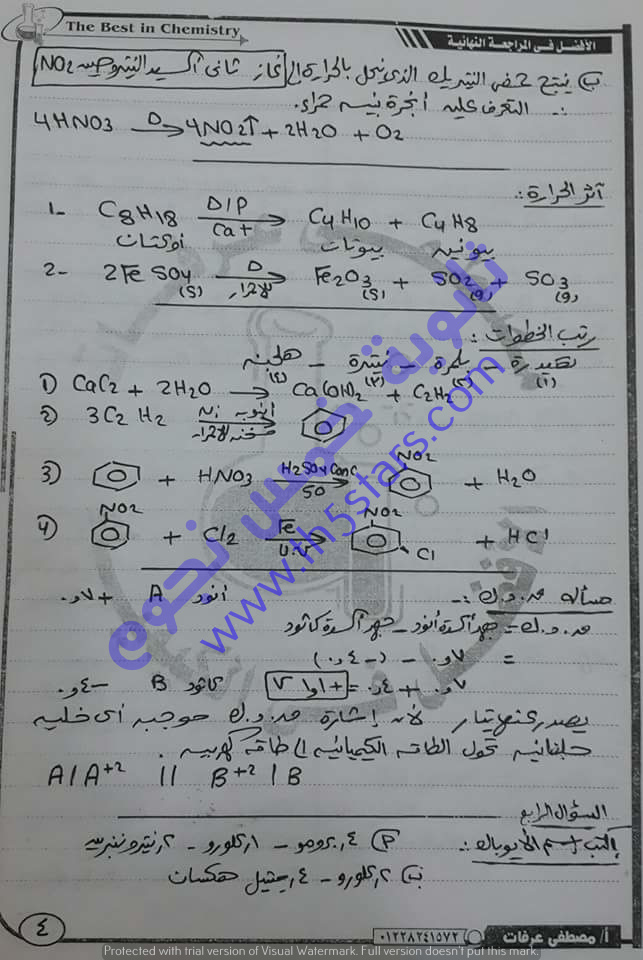 The Best in Chemistry
الأفضل فى المراجعة النهائية
ب) ينتج حمض النيتريك الذى ينحل بالحرارة إلى غاز ثانى أكسيد النيتروجين NO2
∴ التعرف عليه أبخرة بنية حمراء.
4HNO3 →Δ 4NO2↑ + 2H2O + O2
أثر الحرارة:
1- C8H18 →Δ/P Cat C4H10 + C4H8
أوكتان بيوتان بيوتين
2- 2FeSO4(s) →Δ Fe2O3(s) + SO2(g) + SO3(g)
رتب الخطوات:
بلمرة - نيترة - هلجنة
(١) (٢) (٣) (٤)
1) CaC2 + 2H2O → Ca(OH)2 + C2H2
2) 3C2H2 →
3) + HNO3 →H2SO4 Conc 50 NO2 + H2O
4) NO2 + Cl2 →Fe U.V NO2 Cl + HCl
مسألة ق.د.ك:- أنود A +٧و.
ق.د.ك = جهد أكسدة أنود - جهد أكسدة كاثود
= ٧و. - (-٤و.)
٧و. + ٤و. = +١و١ V كاثود B -٤و.
يصدر عنها تيار لأن إشارة ق.د.ك موجبة أى خلية
جلفانية تحول الطاقة الكيميائية إلى طاقة كهربية.
A/A+2 || B+2/B
السؤال الرابع
أكتب إسم الأيوباك: أ) ٤-برومو-١-كلورو-٢-نيتروبنزين
ب) ٢-كلورو-٤-ميثيل هكسان
٤
أ/ مصطفى عرفات
٠١٢٢٨٢٤١٥٧٢
ثانوية خمس نجوم
www.th5stars.com
Protected with trial version of Visual Watermark. Full version doesn't put this mark.